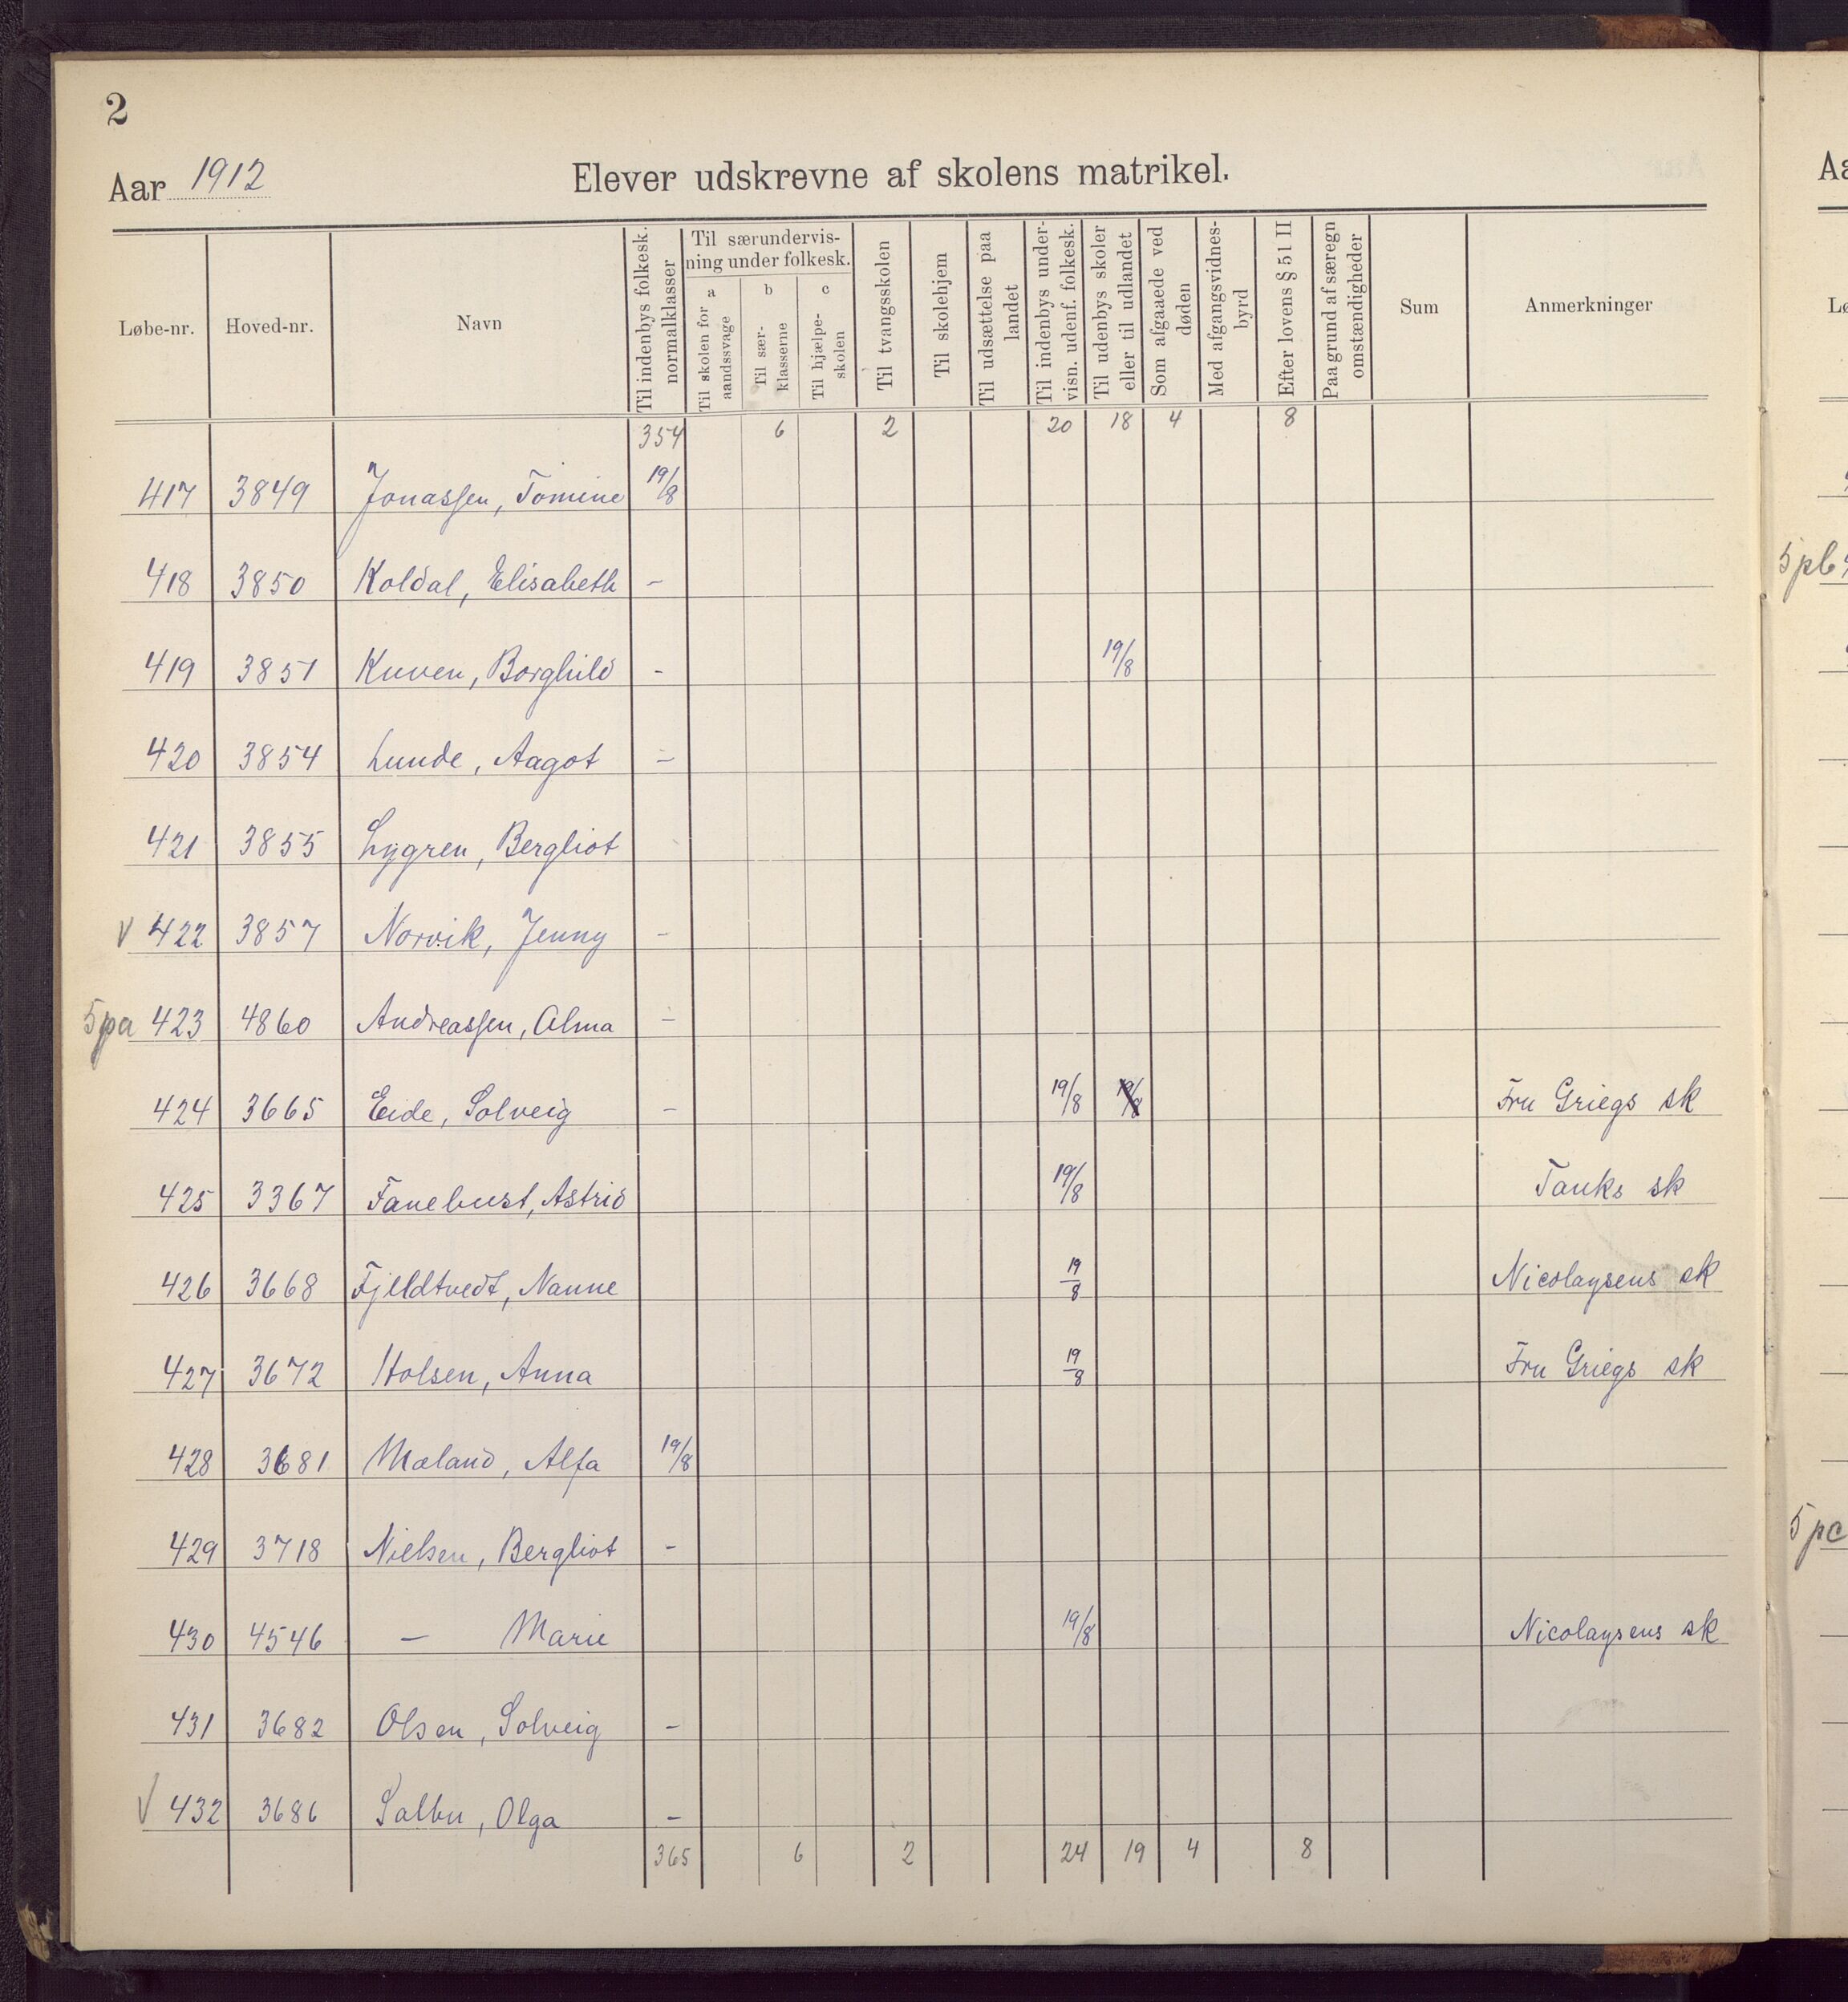 2
Aar 1912 Elever udskrevne af skolens matrikel.
Løbe-nr. Hoved-nr. Navn Til indenbys folkesk. normalklasser Til særundervisning under folkesk. a Til skolen for aandssvage b Til særklasserne c Til hjælpeskolen Til tvangsskolen Til skolehjem Til udsættelse paa landet Til indenbys undervisn. udenf. folkesk. Til udenbys skoler eller til udlandet Som afgaaede ved døden Med afgangsvidnesbyrd Efter lovens § 51 II Paa grund af særegn omstændigheder Sum Anmerkninger
354 6 2 20 18 4 8
417 3849 Jonassen, Tomine 19/8
418 3850 Koldal, Elisabeth –
419 3851 Kuven, Borghild – 19/8
420 3854 Lunde, Aagot –
421 3855 Lygren, Bergliot
V 422 3857 Norvik, Jenny –
5pa 423 4860 Andreassen, Alma –
424 3665 Eide, Solveig – 19/8 19/8 Fru Griegs sk
425 3367 Fanebust, Astrid 19/8 Tanks sk
426 3668 Fjeldtvedt, Nanne 19/8 Nicolaysens sk
427 3672 Holsen, Anna 19/8 Fru Griegs sk
428 3681 Mæland, Alfa 19/8
429 3718 Nielsen, Bergliot –
430 4546 – Marie 19/8 Nicolaysens sk
431 3682 Olsen, Solveig –
V 432 3686 Salbu, Olga –
365 6 2 24 19 4 8
5pb
5pc